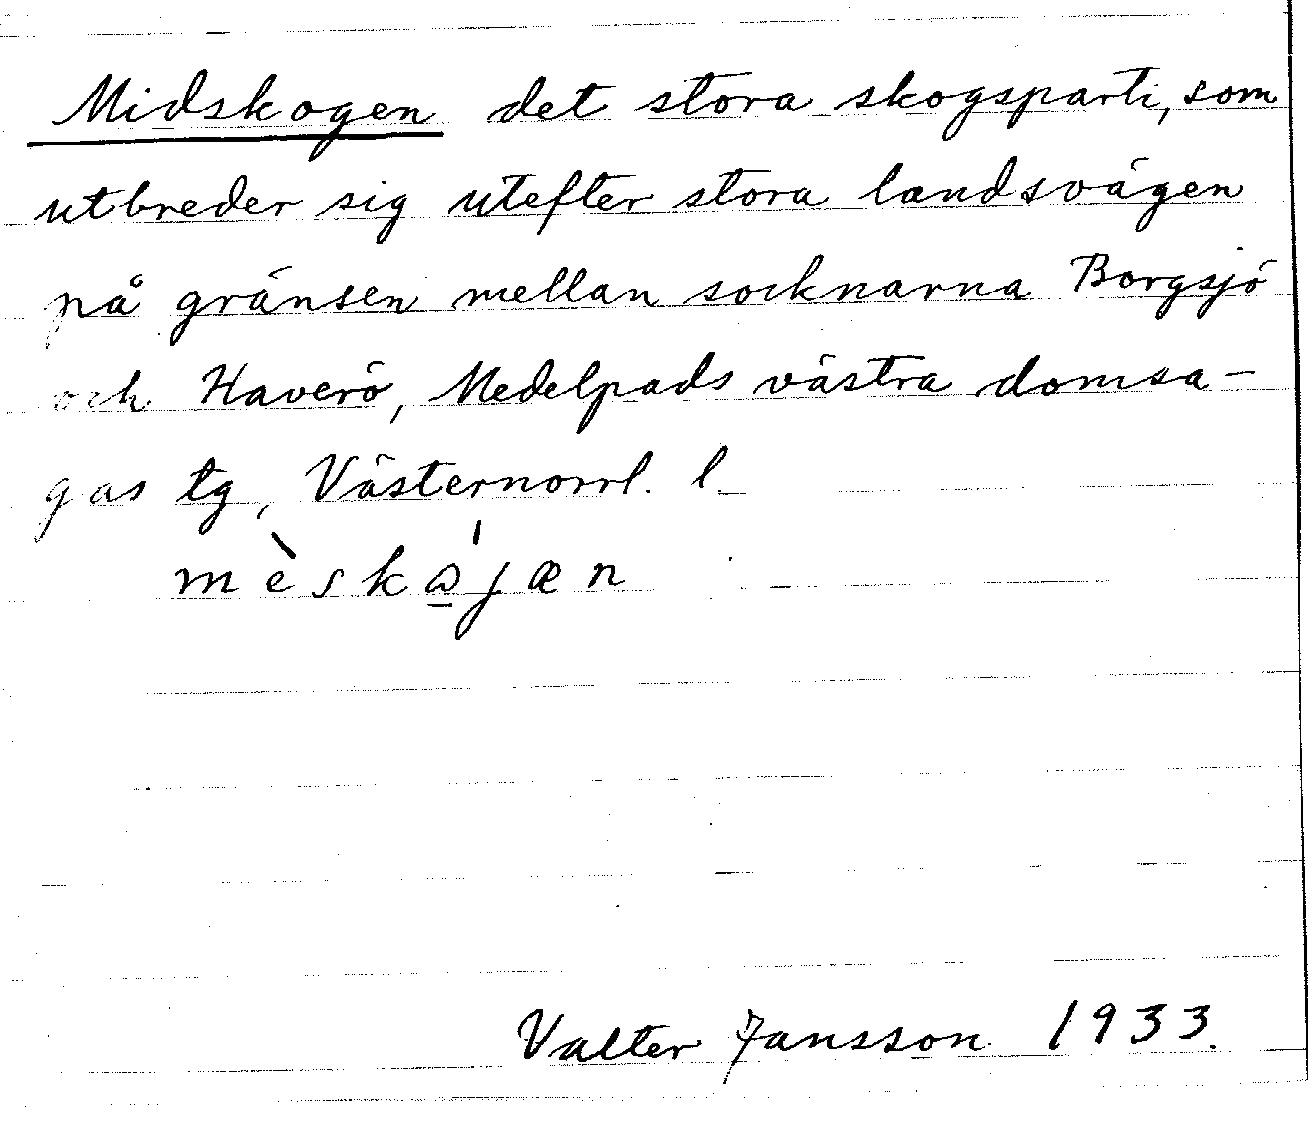 Midskogen det stora skogsparti, som
utbreder sig utefter stora landsvägen
på gränsen mellan socknarna Borgsjö
och Haverö, Medelpads västra domsa-
gas tg, Västernorrl. l
mèskɷ̠́jæn
Valter Jansson 1933.